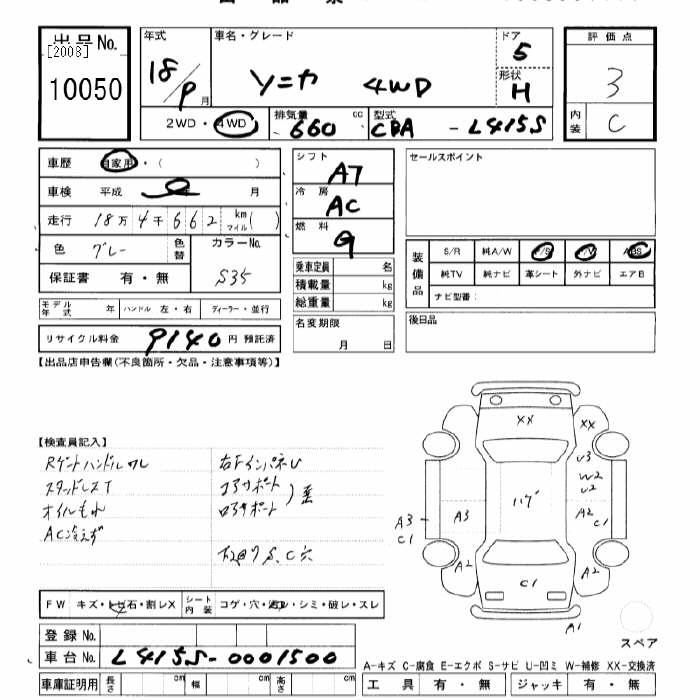 出品No. 年式 車名・グレード ドア 評価点
[2008] 18/P 月 ソニカ 4WD 5 3
10050 形状 H
2WD・4WD 排気量 660 cc 型式 CBA - L415S 内装 C
車歴 自家用・( ) シフト A7 セールスポイント
車検 平成 年 月 冷房 AC
走行 18万4千662 km マイル ( ) 燃料 G
色 グレー 色替 カラーNo. S35
保証書 有・無
乗車定員 名
積載量 kg
総重量 kg
装備品 S/R 純A/W P/S P/W ABS
純TV 純ナビ 革シート 外ナビ エアB
ナビ型番:
モデル年式 年 ハンドル 左・右 ディーラー・並行
名変期限 月 日
後日品
リサイクル料金 9140 円 預託済
【出品店申告欄(不良箇所・欠品・注意事項等)】
【検査員記入】
Rゲートハンドルワレ
スタッドレスT
オイルもれ
AC冷えず
右Fインパネし
コアサポート
ロアサポート
歪
S、C穴
XX XX
U3
W2
U2
ハゲ
A3 A3 A2
C1 C1
A2 A2
C1
A1
スペア
FW キズ・トビ石・割レX シート内装 コゲ・穴・汚レ・シミ・破レ・スレ
登録No.
車台No. L415S-0001500
車庫証明用 長さ cm 幅 cm 高さ cm
A-キズ C-腐食 E-エクボ S-サビ U-凹ミ W-補修 XX-交換済
工具 有・無 ジャッキ 有・無